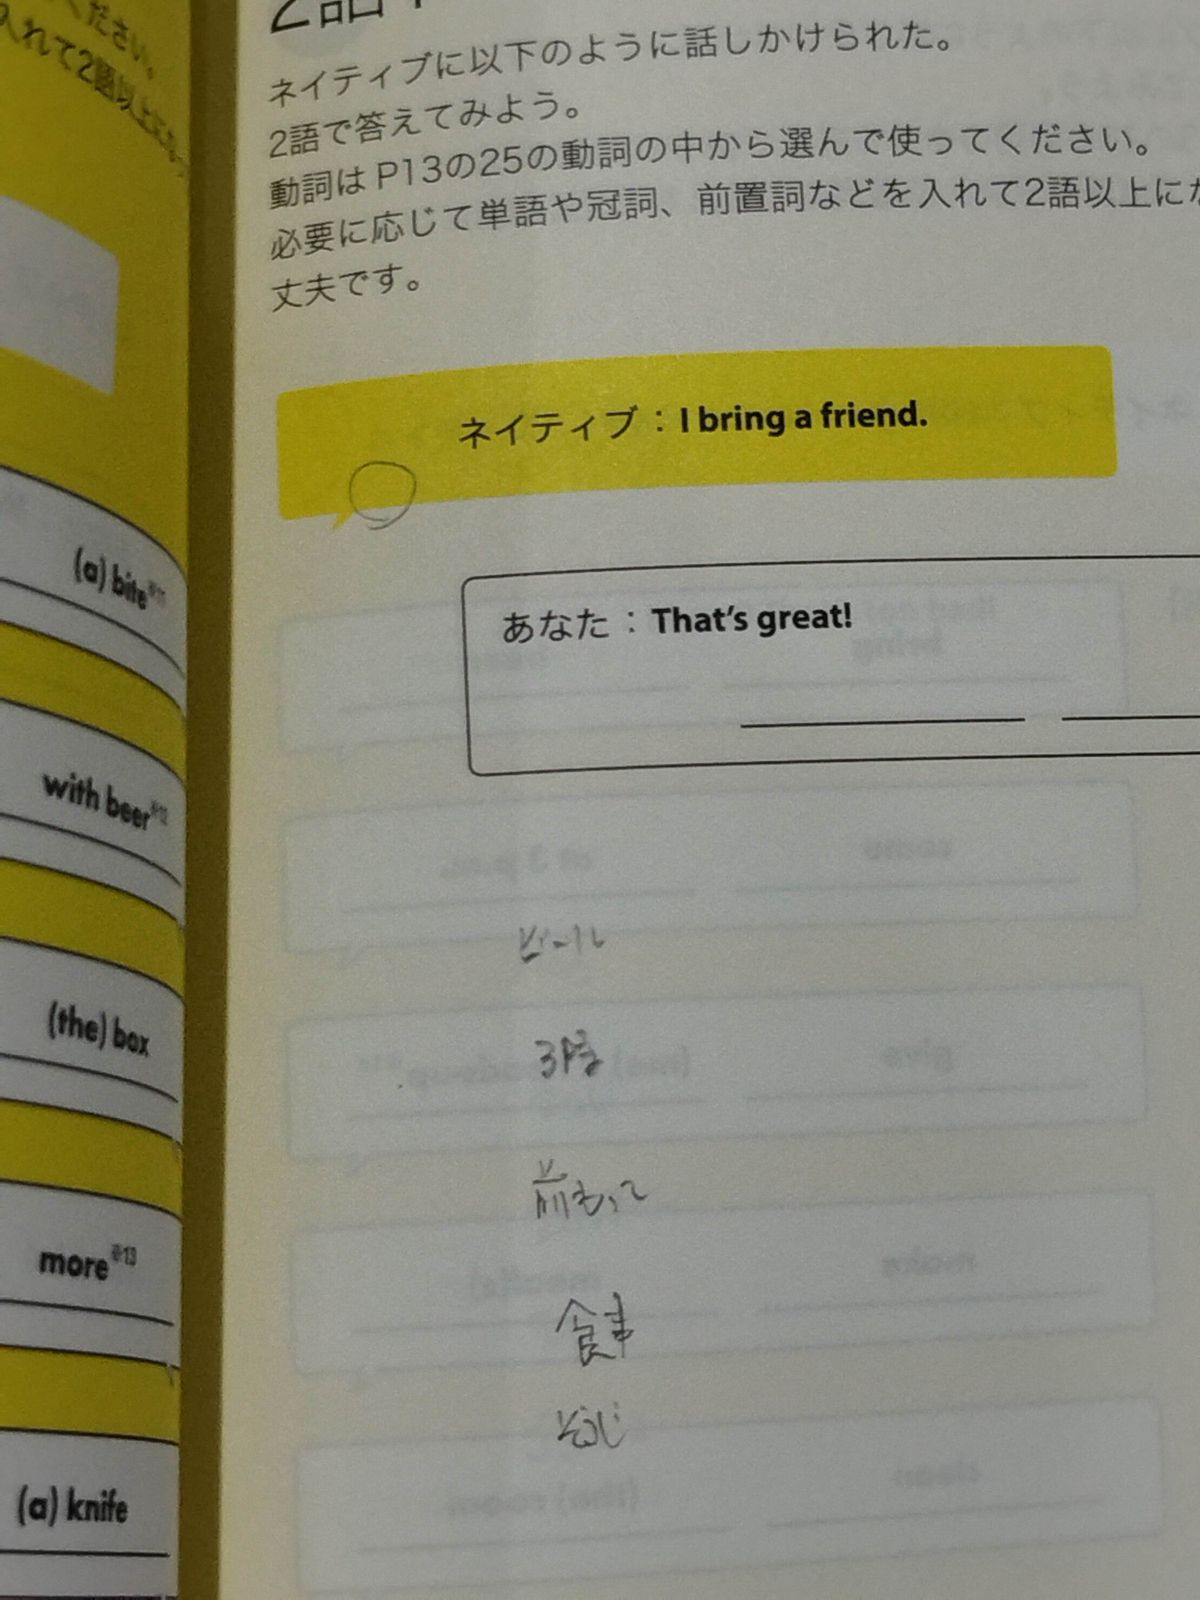 ください。
入れて2語以上
(a) bite
with beer
(the) box
more※13
(a) knife
2語
ネイティブに以下のように話しかけられた。
2語で答えてみよう。
動詞は P13の25の動詞の中から選んで使ってください。
必要に応じて単語や冠詞、前置詞などを入れて2語以上にな
丈夫です。
ネイティブ：I bring a friend.
あなた：That's great!
ビール
3時
前もって
食事
そうじ